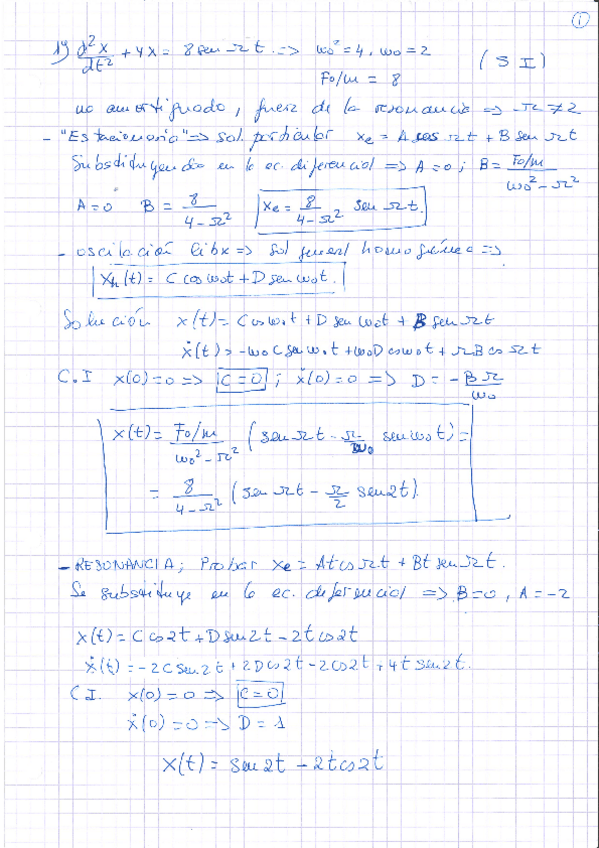 ①
1º) d²x/dt² + 4x = 8 sen Ωt => ω₀² = 4, ω₀ = 2 (S I)
F₀/m = 8
no amortiguado, fuera de la resonancia => Ω ≠ 2
- "Estacionaria" => sol particular xe = A cos Ωt + B sen Ωt
Substituyendo en la ec. diferencial => A = 0 ; B = (F₀/m)/(ω₀² - Ω²)
A = 0 B = 8/(4 - Ω²) xe = 8/(4 - Ω²) sen Ωt.
- oscilación libre => sol general homogénea =>
xh(t) = C cos ω₀t + D sen ω₀t.
Solución x(t) = C cos ω₀t + D sen ω₀t + B sen Ωt
ẋ(t) = -ω₀C sen ω₀t + ω₀D cos ω₀t + ΩB cos Ωt
C.I x(0) = 0 => C = 0 ; ẋ(0) = 0 => D = -BΩ/ω₀
x(t) = (F₀/m)/(ω₀² - Ω²) (sen Ωt - Ω/ω₀ sen ω₀t) =
= 8/(4 - Ω²) (sen Ωt - Ω/2 sen 2t).
- RESONANCIA; Probar xe = At cos Ωt + Bt sen Ωt.
Se substituye en la ec. diferencial => B = 0, A = -2
x(t) = C cos 2t + D sen 2t - 2t cos 2t
ẋ(t) = -2C sen 2t + 2D cos 2t - 2 cos 2t + 4t sen 2t.
C.I. x(0) = 0 => C = 0
ẋ(0) = 0 => D = 1
x(t) = sen 2t - 2t cos 2t